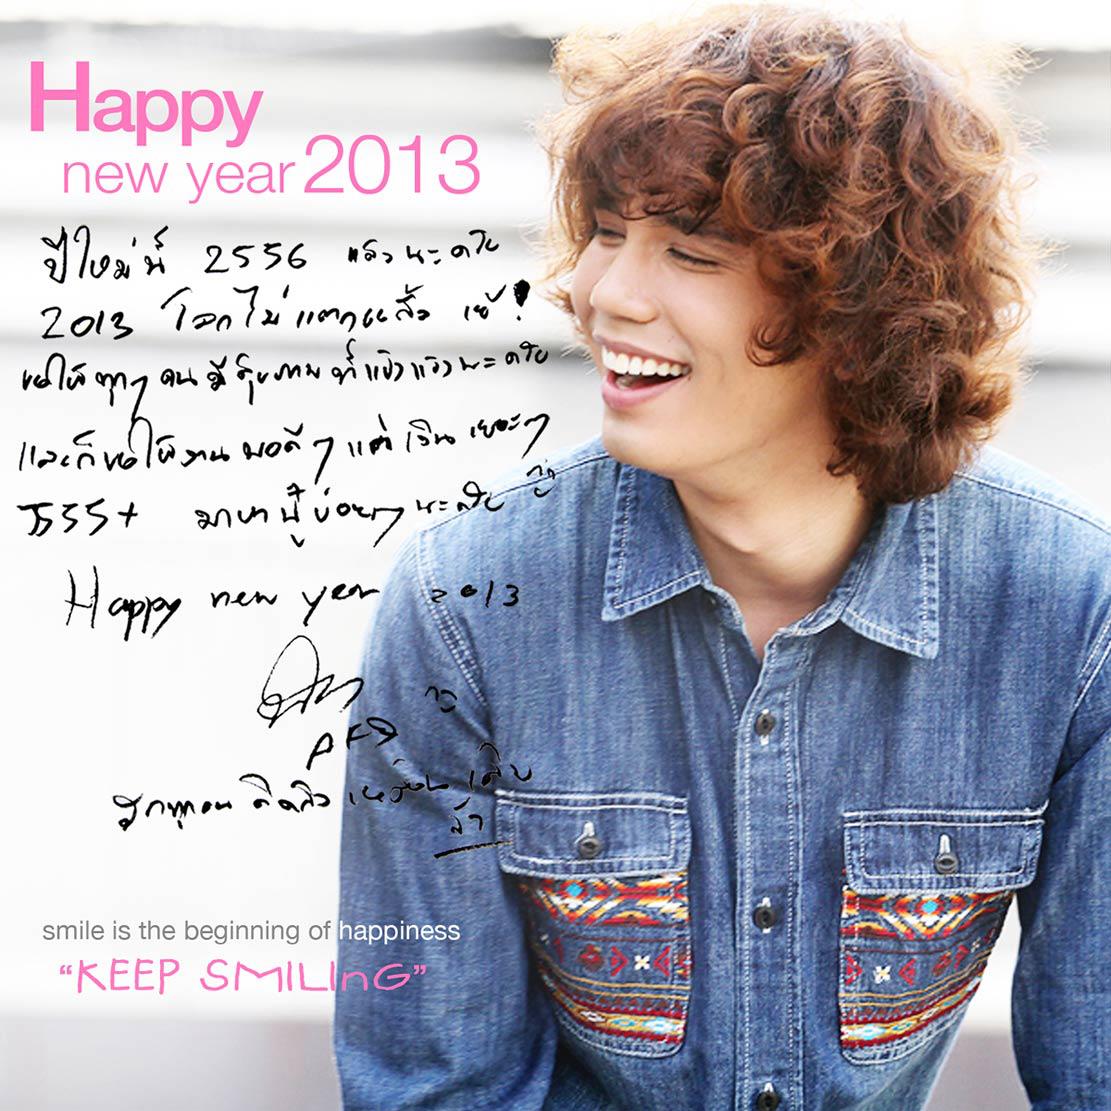 Happy
new year 2013
ปีใหม่นี้ 2556 แล้วนะครับ
2013 โลกไม่แตกแล้ว เย้!
ขอให้ทุกๆ คนมีสุขภาพที่แข็งแรงนะครับ
และก็ขอให้งานพอดีๆ แต่เงินเยอะๆ
5555+ มาหา บ่อยๆ นะครับ
Happy new year 2013
คิดถึงเหมือนเดิม
smile is the beginning of happiness
“KEEP SMILInG”